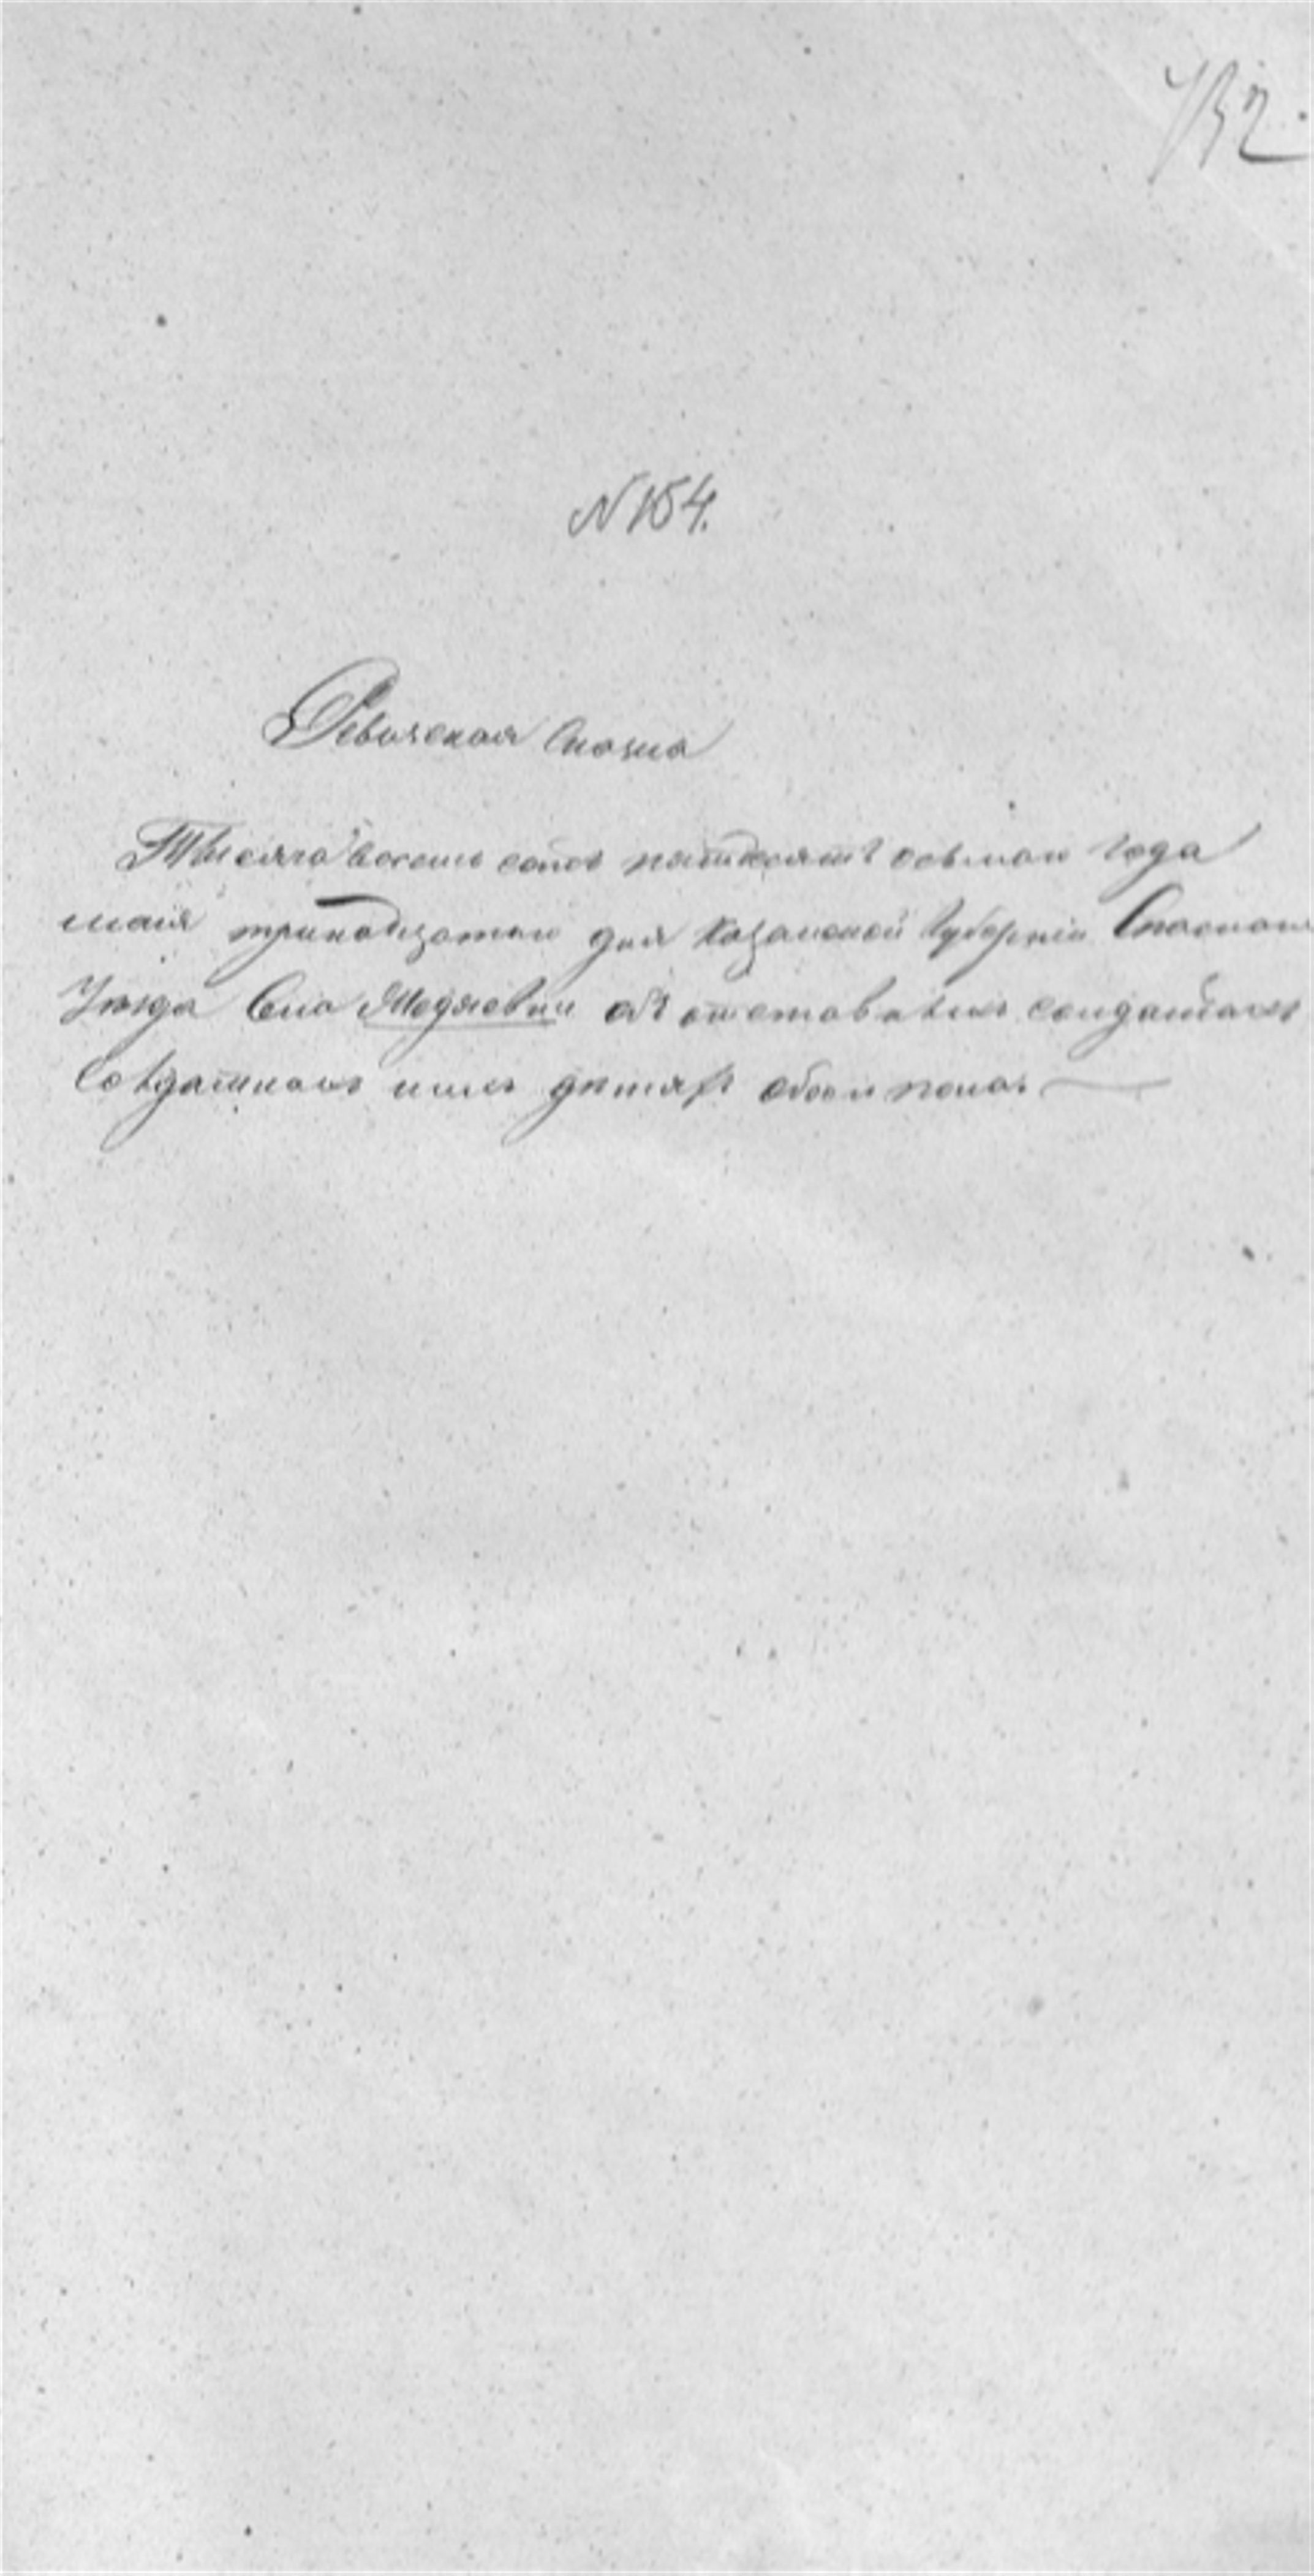 N 154.
Ревизская Сказка
Тысяча восемь сотъ пятдесятъ восьмаго года
маія тринадцатаго дня Казанской Губерніи Спаскаго
Уезда Села об отставныхъ солдатахъ
Солдаткахъ и ихъ детяхъ обоего пола.